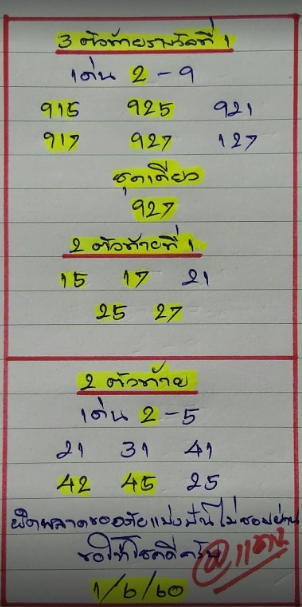 3 ตัวท้ายรางวัลที่ 1
เด่น 2 - 9
915 925 921
917 927 127
ชุดเดียว
927
2 ตัวท้ายที่ 1
15 17 21
25 27
2 ตัวท้าย
เด่น 2 - 5
21 31 41
42 45 25
ผิดพลาดขออภัยแบ่งปันไม่ชอบผ่าน
ขอให้โชคดีครับ
1/6/60